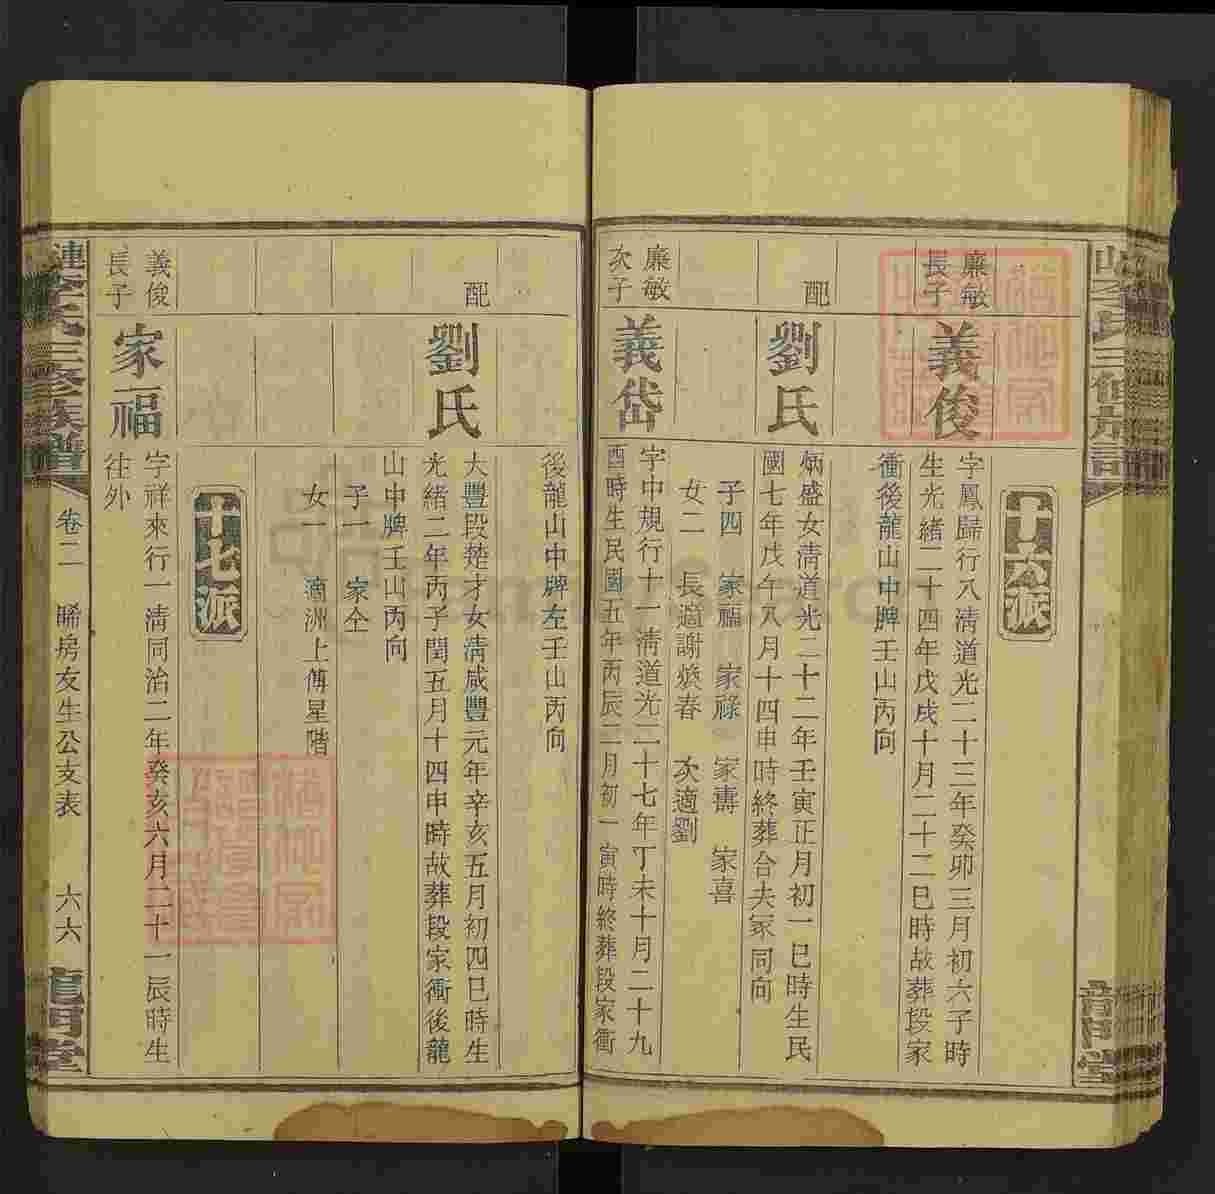 十六派
廉敏
長子
義俊
字鳳歸行八清道光二十三年癸卯三月初六子時
生光緒二十四年戊戌十月二十二巳時故葬段家
衝後龍山中牌壬山丙向
配
劉氏
炳盛女清道光二十二年壬寅正月初一巳時生民
國七年戊午八月十四申時終葬合夫冢同向
子四 家福 家祿 家壽 家喜
女二 長適謝煥春 次適劉
廉敏
次子
義岱
字中規行十一清道光二十七年丁未十月二十九
酉時生民國五年丙辰二月初一寅時終葬段家衝
後龍山中牌左壬山丙向
配
劉氏
大豐段楚才女清咸豐元年辛亥五月初四巳時生
光緒二年丙子閏五月十四申時故葬段家衝後龍
山中牌壬山丙向
子一 家全
女一 適洲上傅星階
十七派
義俊
長子
家福
字祥來行一清同治二年癸亥六月二十一辰時生
往外
漣李氏三修族譜
卷二 晞房友生公支表 六六
龍門堂